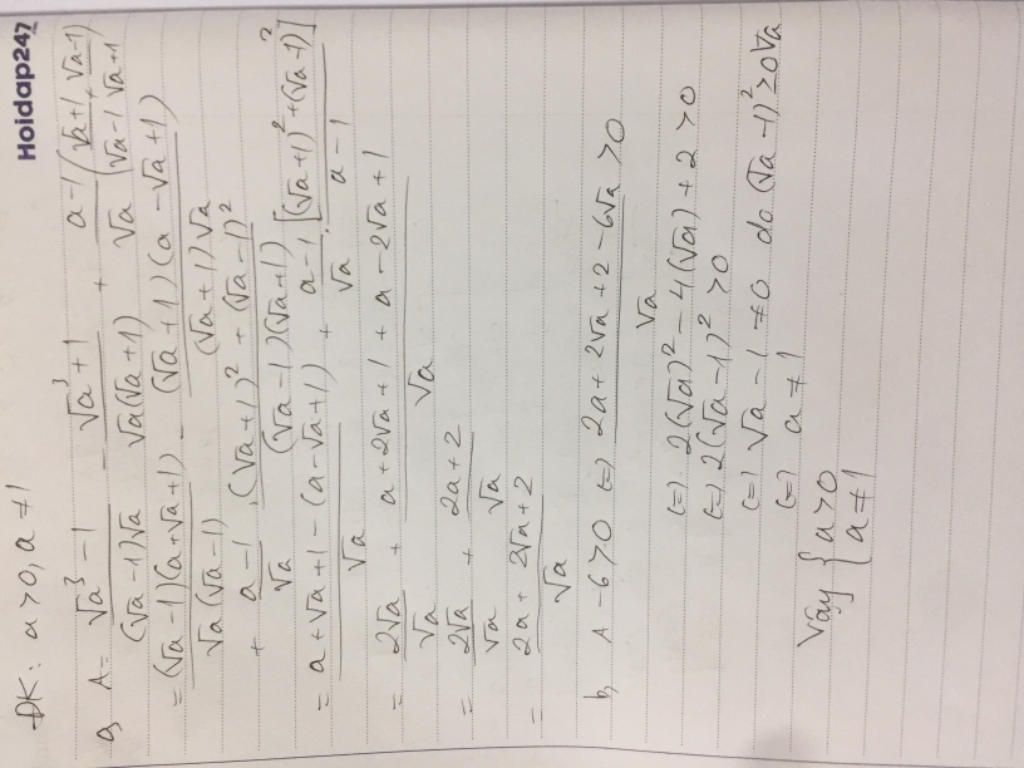 Hoidap247
ĐK: a > 0, a ≠ 1
a, A = (√a³ - 1)/((√a - 1)√a) - (√a³ + 1)/(√a(√a + 1)) + (a - 1)/√a ((√a + 1)/(√a - 1) + (√a - 1)/(√a + 1))
= ((√a - 1)(a + √a + 1))/(√a(√a - 1)) - ((√a + 1)(a - √a + 1))/((√a + 1)√a)
+ (a - 1)/√a . ((√a + 1)² + (√a - 1)²)/((√a - 1)(√a + 1))
= (a + √a + 1 - (a - √a + 1))/√a + (a - 1)/√a . [(√a + 1)² + (√a - 1)²]/(a - 1)
= 2√a/√a + (a + 2√a + 1 + a - 2√a + 1)/√a
= 2√a/√a + (2a + 2)/√a
= (2a + 2√a + 2)/√a
b, A - 6 > 0 (=) (2a + 2√a + 2 - 6√a)/√a > 0
(=) 2(√a)² - 4(√a) + 2 > 0
(=) 2(√a - 1)² > 0
(=) √a - 1 ≠ 0 do (√a - 1)² ≥ 0 ∀a
(=) a ≠ 1
Vậy { a > 0
a ≠ 1